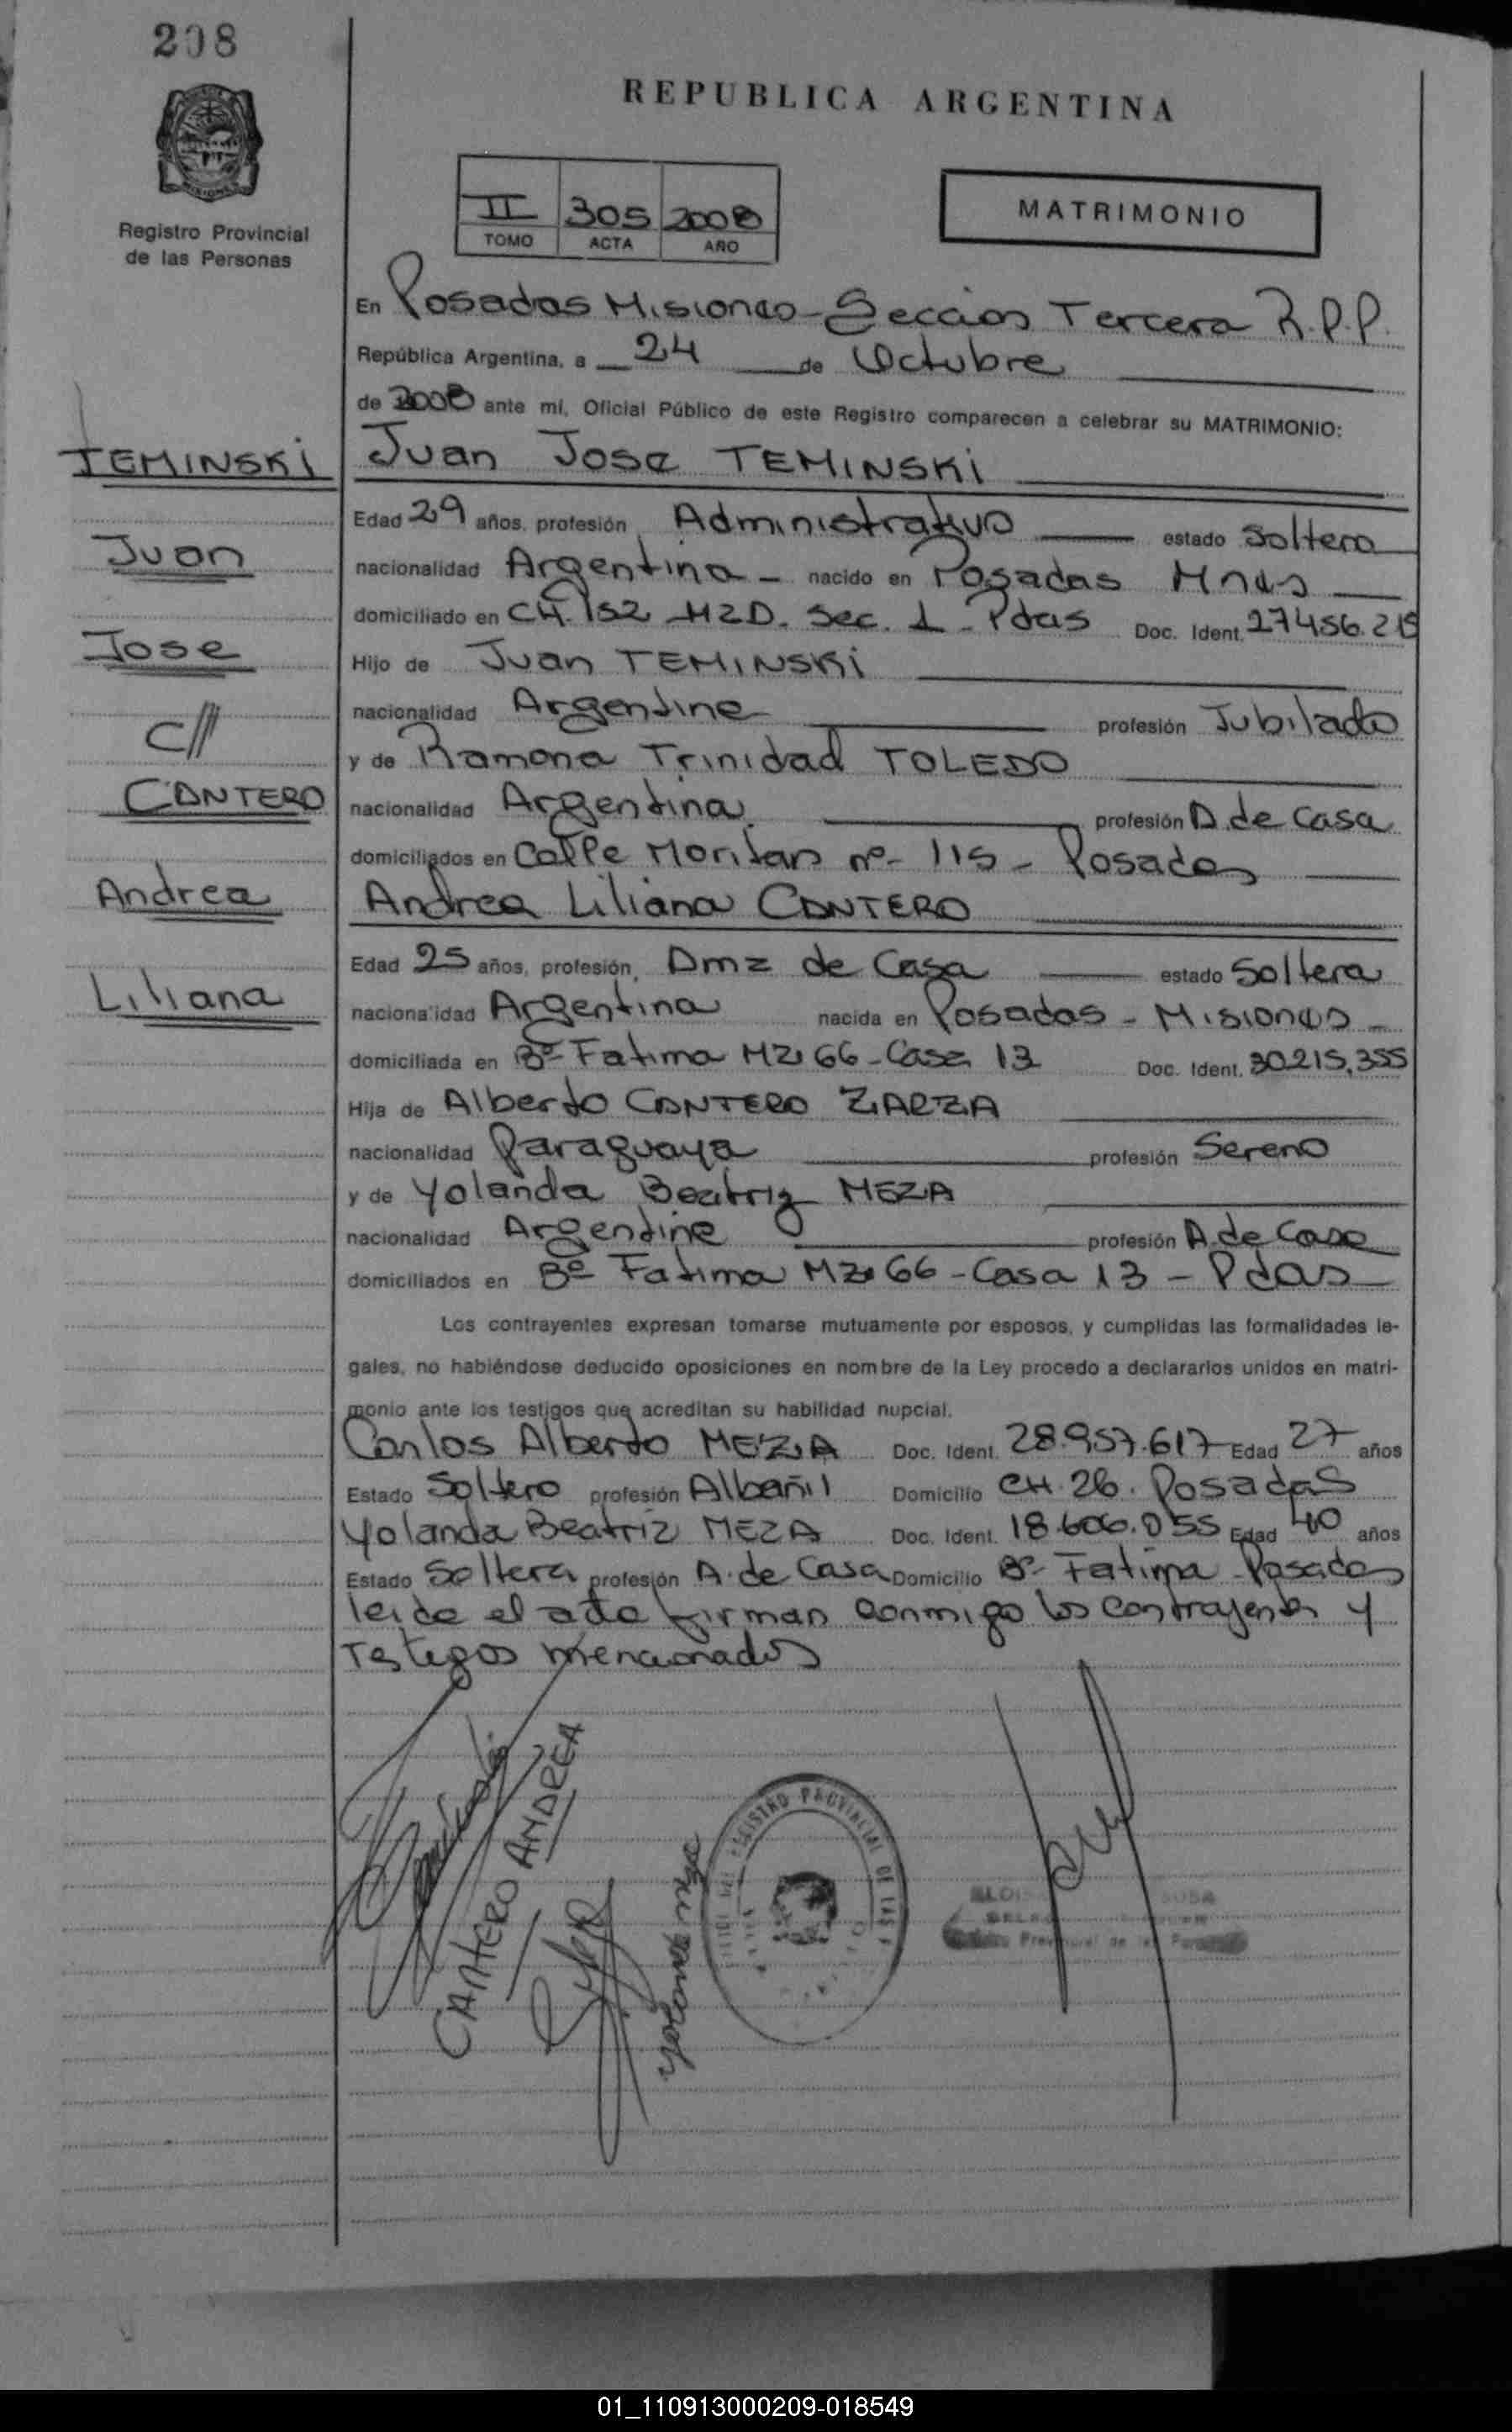 208
REPUBLICA ARGENTINA
Registro Provincial
de las Personas
II 305 2008
TOMO ACTA AÑO
MATRIMONIO
En Posadas Misiones - Seccion Tercera R.P.P.
República Argentina, a 24 de Octubre
de 2008 ante mí, Oficial Público de este Registro comparecen a celebrar su MATRIMONIO:
TEMINSKI
Juan
Jose
c//
CANTERO
Andrea
Liliana
Juan Jose TEMINSKI
Edad 29 años, profesión Administrativo estado Soltero
nacionalidad Argentina - nacido en Posadas Mnes
domiciliado en CH. 152 - MZD. Sec. 1 - Pdas Doc. Ident. 27456.215
Hijo de Juan TEMINSKI
nacionalidad Argentina profesión Jubilado
y de Ramona Trinidad TOLEDO
nacionalidad Argentina profesión A. de Casa
domiciliados en Calle nº - 115 - Posadas
Andrea Liliana CANTERO
Edad 25 años, profesión, Ama de Casa estado Soltera
nacionalidad Argentina nacida en Posadas - Misiones -
domiciliada en Bº Fatima MZ 66 - Casa 13 Doc. Ident. 30.215.355
Hija de Alberto CANTERO ZARZA
nacionalidad Paraguaya profesión Sereno
y de Yolanda Beatriz MEZA
nacionalidad Argentina profesión A. de Casa
domiciliados en Bº Fatima MZ 66 - Casa 13 - Pdas
Los contrayentes expresan tomarse mutuamente por esposos, y cumplidas las formalidades le-
gales, no habiéndose deducido oposiciones en nombre de la Ley procedo a declararlos unidos en matri-
monio ante los testigos que acreditan su habilidad nupcial.
Carlos Alberto MEZA Doc. Ident. 28.957.617 Edad 27 años
Estado Soltero profesión Albañil Domicilio CH. 26. Posadas
Yolanda Beatriz MEZA Doc. Ident. 18.606.055 Edad 40 años
Estado Soltera profesión A. de Casa Domicilio Bº Fatima - Posadas
leida el acta firman conmigo los contrayentes y
Testigos mencionados
CANTERO ANDREA
REGISTRO PROVINCIAL DE LAS P
01_110913000209-018549